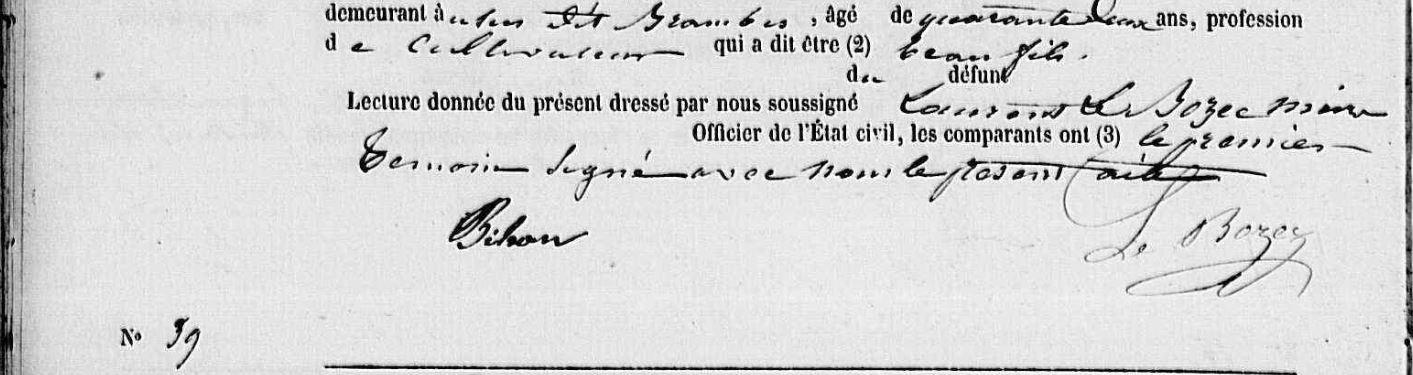 demeurant à dit , âgé de quarante deux ans, profession
de Cultivateur qui a dit être (2) beau fils.
du défunt
Lecture donnée du présent dressé par nous soussigné Laurent Le Bozec maire
Officier de l'État civil, les comparants ont (3) le premier
Temoin Signé avec nous le présent acte
Bihan Le Bozec
No 39